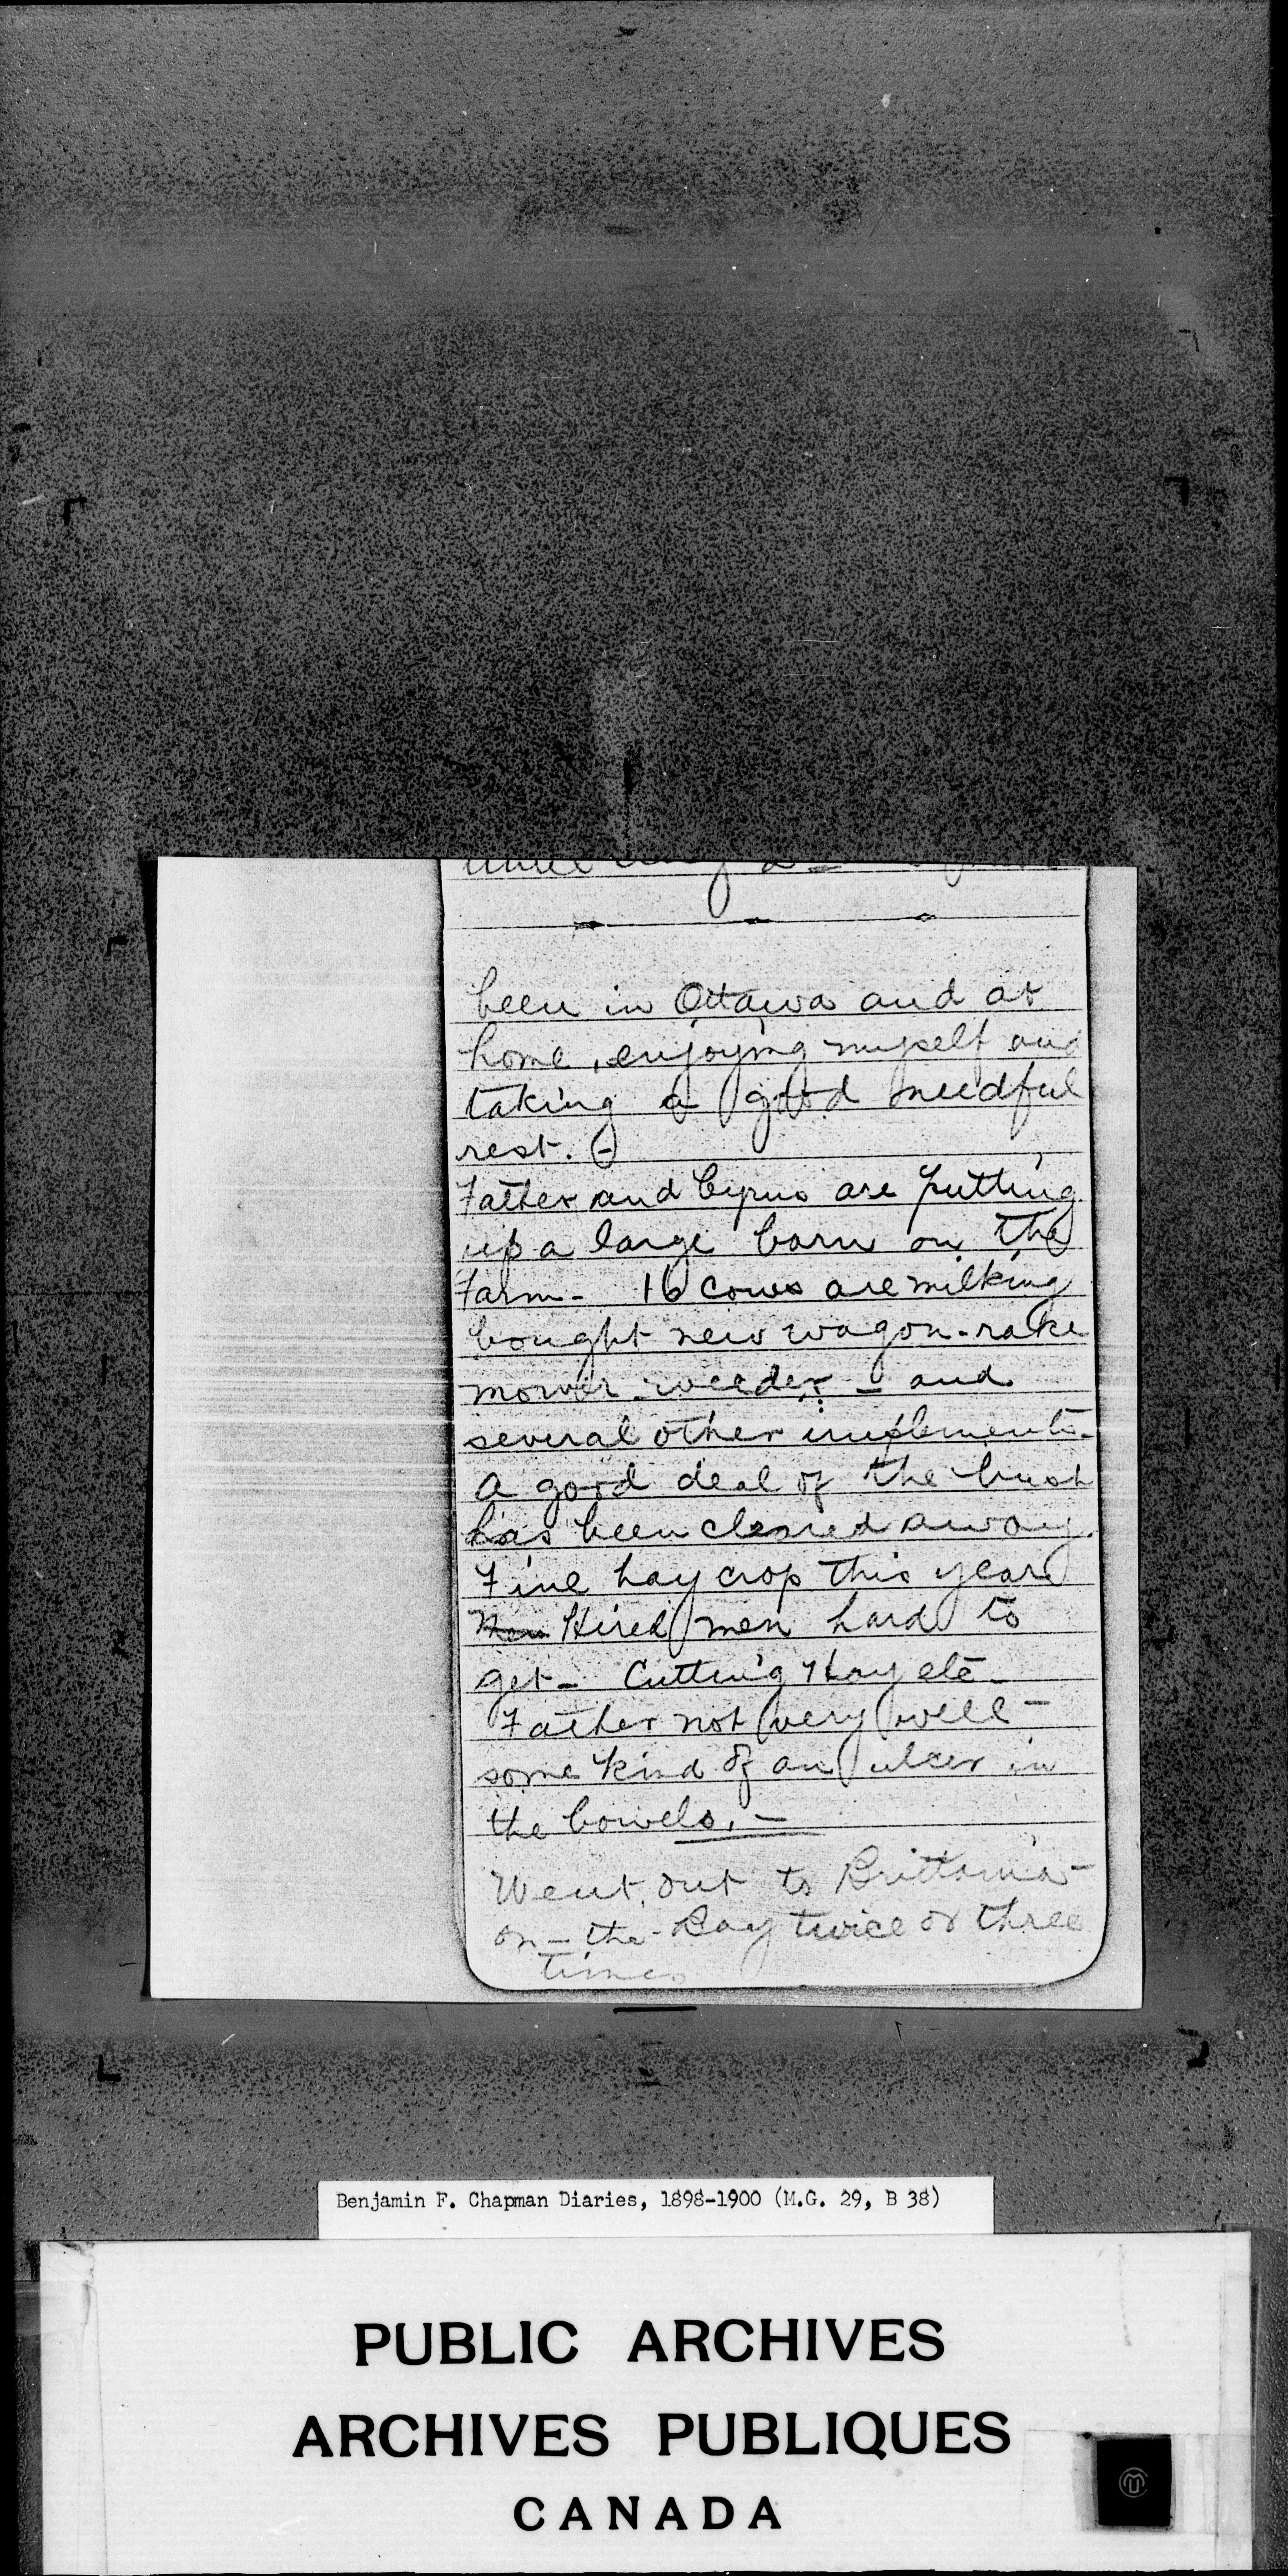 been in Ottawa and at
home, enjoying myself and
taking a good needful
rest. -
Father and Cyrus are putting
up a large barn on the
Farm - 16 cows are milking
bought new wagon - rake
mower - weeder - and
several other implements -
A good deal of the bush
has been cleared away.
Fine hay crop this year
Men Hired men hard to
get - Cutting Hay etc -
Father not very well -
some kind of an ulcer in
the bowels. -
Went out to Brittania -
on - the - Bay twice or three
times
Benjamin F. Chapman Diaries, 1898-1900 (M.G. 29, B 38)
PUBLIC ARCHIVES
ARCHIVES PUBLIQUES
CANADA